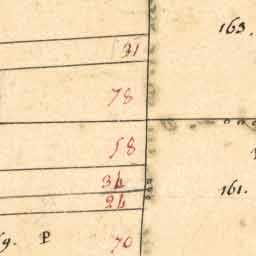 163.
31
78
58
34
161.
24
9. P
70